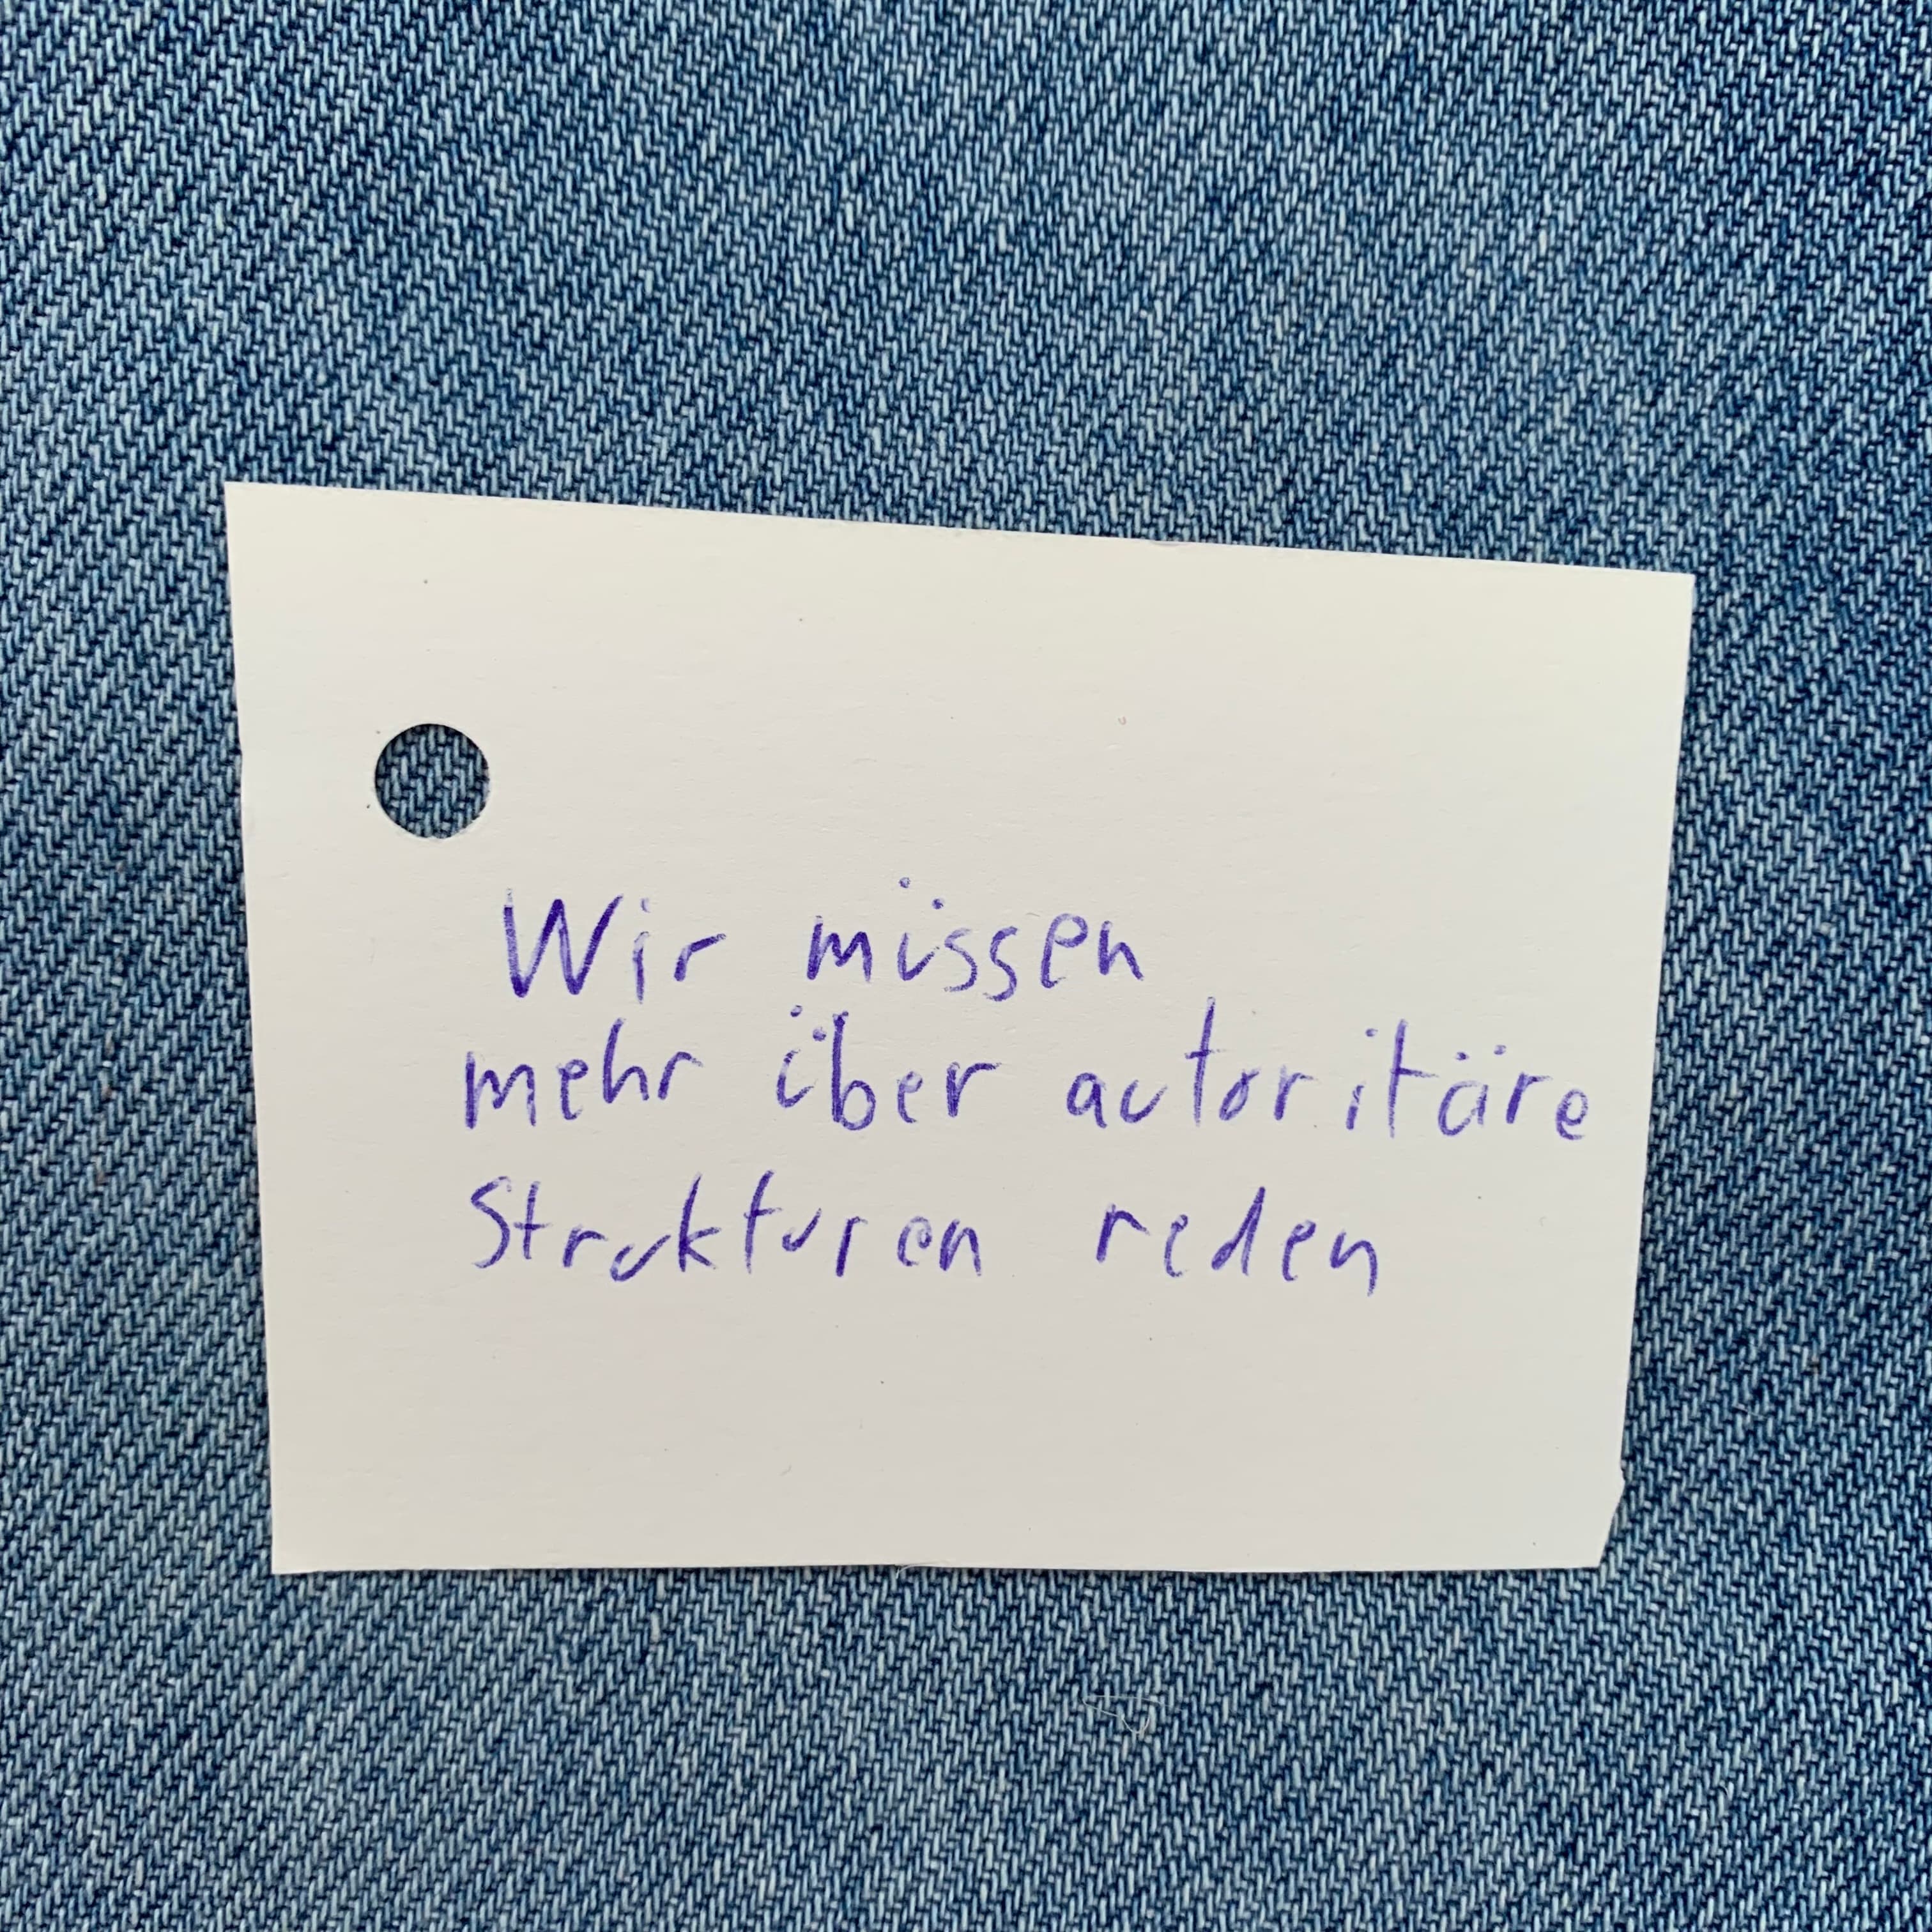 Wir müssen
mehr über autoritäre
Strukturen reden